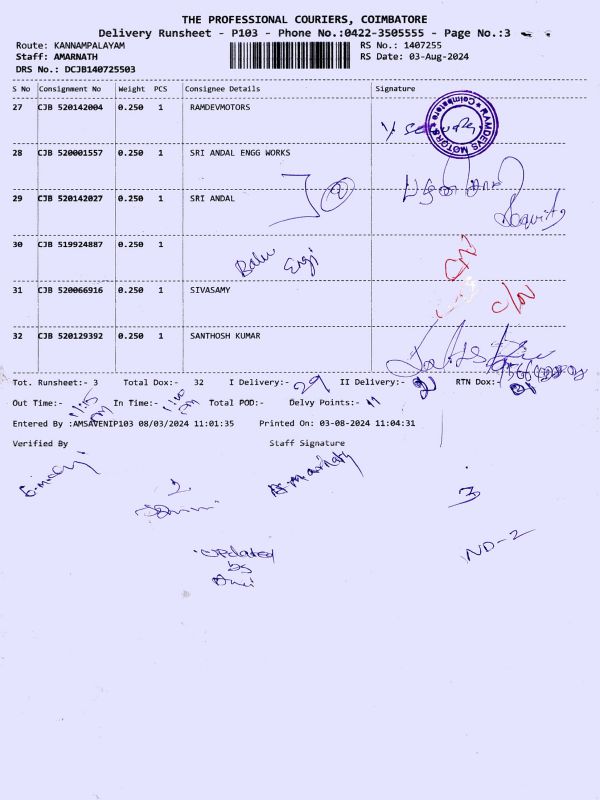 THE PROFESSIONAL COURIERS, COIMBATORE
Delivery Runsheet - P103 - Phone No.:0422-3505555 - Page No.:3
Route: KANNAMPALAYAM RS No.: 1407255
Staff: AMARNATH RS Date: 03-Aug-2024
DRS No.: DCJB140725503
S No Consignment No Weight PCS Consignee Details Signature
27 CJB 520142004 0.250 1 RAMDEVMOTORS
RAMDEVS MOTORS Coimbatore
28 CJB 520001557 0.250 1 SRI ANDAL ENGG WORKS
29 CJB 520142027 0.250 1 SRI ANDAL
30 CJB 519924887 0.250 1 Balu Engi C/N
31 CJB 520066916 0.250 1 SIVASAMY C/N
32 CJB 520129392 0.250 1 SANTHOSH KUMAR
Tot. Runsheet:- 3 Total Dox:- 32 I Delivery:- 29 II Delivery:- RTN Dox:-
Out Time:- 11:15 In Time:- Total POD:- Delvy Points:- 11
Entered By :AMSAVENIP103 08/03/2024 11:01:35 Printed On: 03-08-2024 11:04:31
Verified By Staff Signature
2 3
ND-2
updated
by